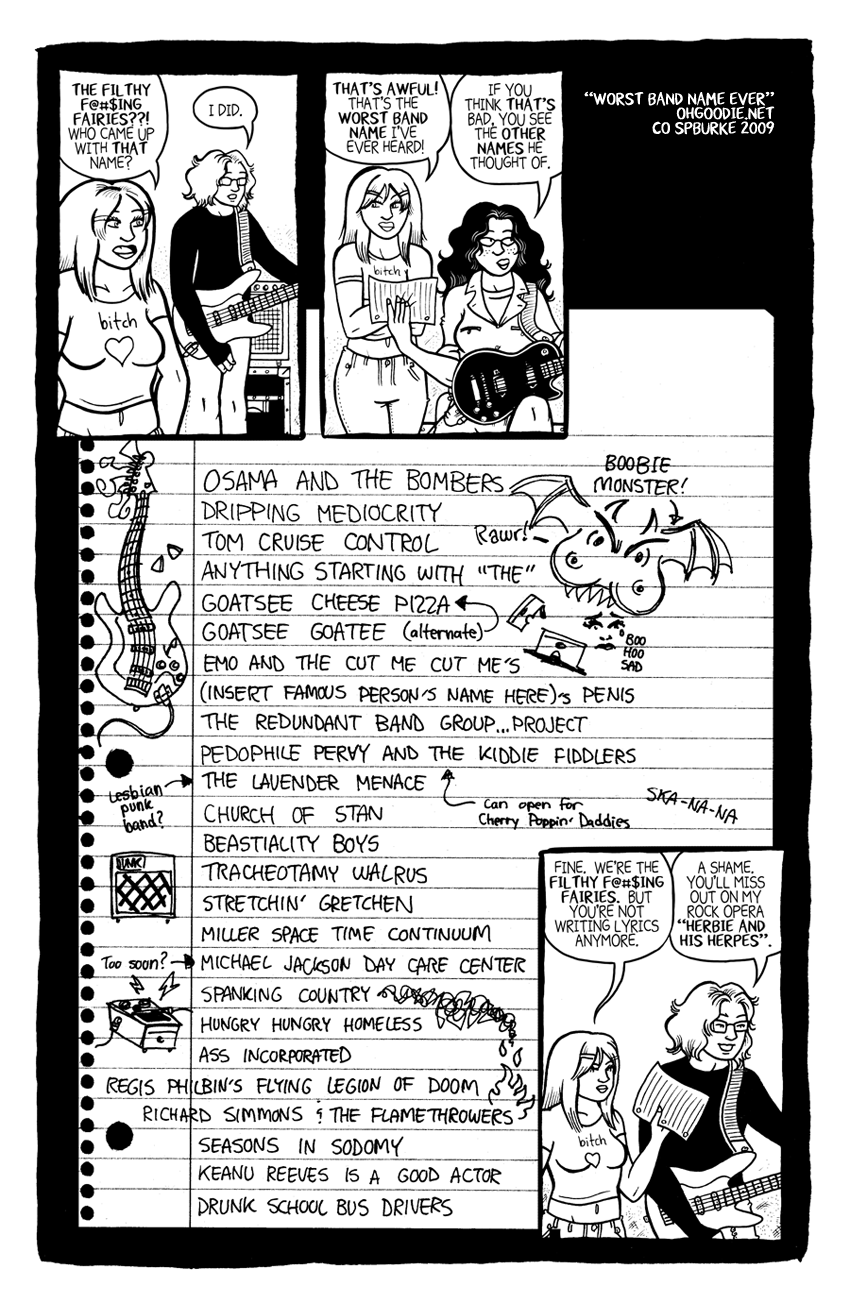 THE FILTHY
F@#$ING
FAIRIES??!
WHO CAME UP
WITH THAT
NAME?
I DID.
THAT'S AWFUL!
THAT'S THE
WORST BAND
NAME I'VE
EVER HEARD!
IF YOU
THINK THAT'S
BAD, YOU SEE
THE OTHER
NAMES HE
THOUGHT OF.
"WORST BAND NAME EVER"
OHGOODIE.NET
CO SPBURKE 2009
bitch
bitch
OSAMA AND THE BOMBERS
BOOBIE
MONSTER!
DRIPPING MEDIOCRITY
TOM CRUISE CONTROL
Rawr!
ANYTHING STARTING WITH "THE"
GOATSEE CHEESE PIZZA
GOATSEE GOATEE (alternate)
BOO
HOO
SAD
EMO AND THE CUT ME CUT ME'S
(INSERT FAMOUS PERSON'S NAME HERE)'S PENIS
THE REDUNDANT BAND GROUP...PROJECT
PEDOPHILE PERVY AND THE KIDDIE FIDDLERS
THE LAVENDER MENACE
Lesbian
punk
band?
Can open for
Cherry Poppin' Daddies
SKA-NA-NA
CHURCH OF STAN
BEASTIALITY BOYS
TRACHEOTAMY WALRUS
STRETCHIN' GRETCHEN
MILLER SPACE TIME CONTINUUM
Too soon?
MICHAEL JACKSON DAY CARE CENTER
SPANKING COUNTRY
HUNGRY HUNGRY HOMELESS
ASS INCORPORATED
REGIS PHILBIN'S FLYING LEGION OF DOOM
RICHARD SIMMONS & THE FLAMETHROWERS
SEASONS IN SODOMY
KEANU REEVES IS A GOOD ACTOR
DRUNK SCHOOL BUS DRIVERS
FINE. WE'RE THE
FILTHY F@#$ING
FAIRIES. BUT
YOU'RE NOT
WRITING LYRICS
ANYMORE.
A SHAME.
YOU'LL MISS
OUT ON MY
ROCK OPERA
"HERBIE AND
HIS HERPES".
bitch